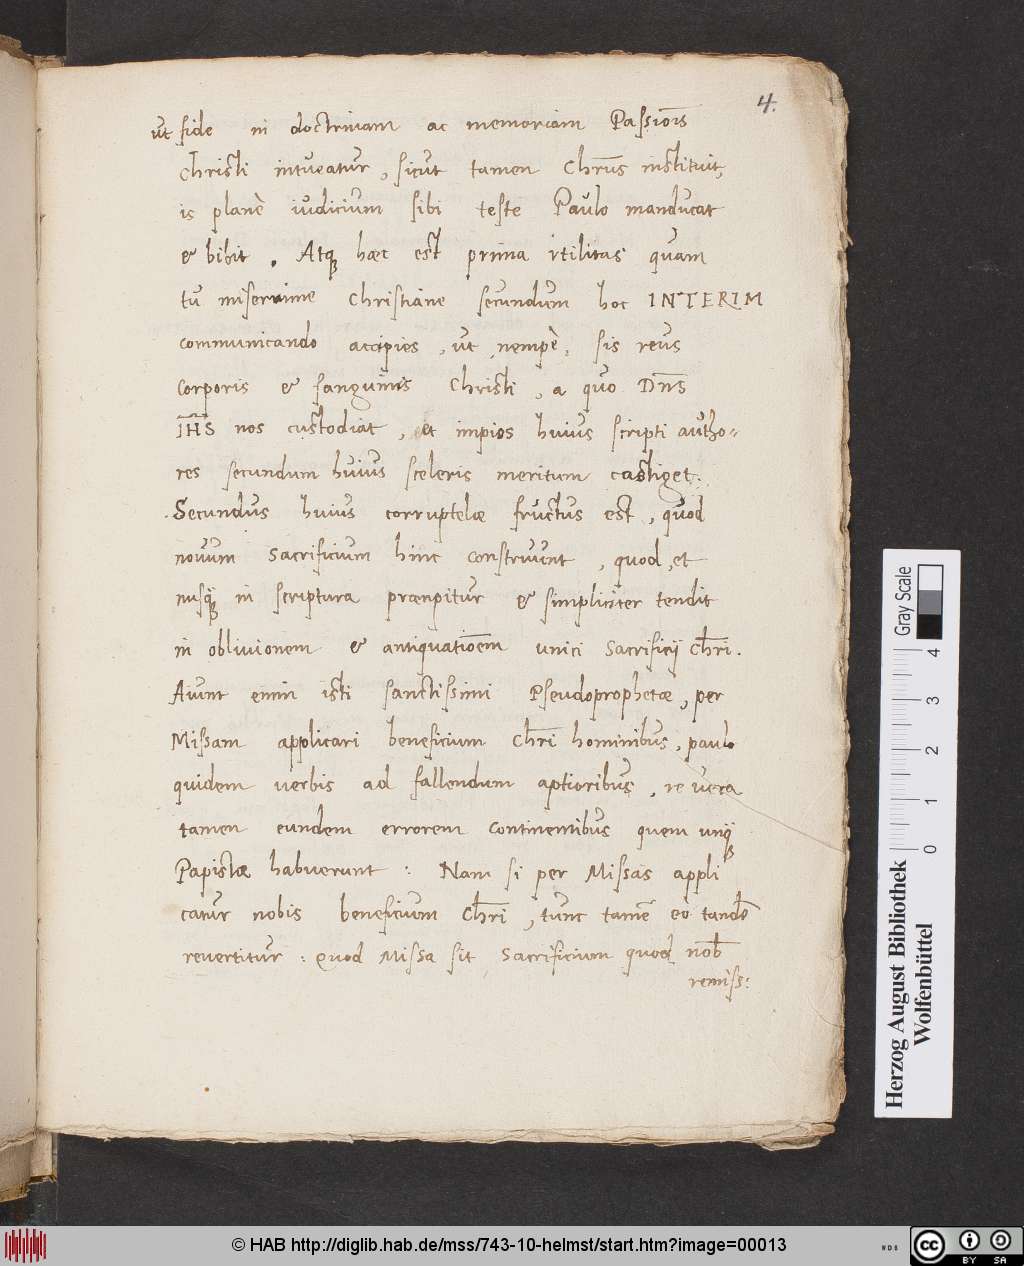 4.
ut fide in doctrinam ac memoriam Passiōis
Christi intueatur, sicut tamen Chrūs instituit,
is planè iudicium sibi teste Paulo manducat
& bibit. Atq; haec est prima vtilitas quam
tu miserrime Christiane secundum hoc INTERIM
communicando accipies, ut nempè sis reus
corporis & sanguinis Christi, a quo Dn̄s
IH̄S nos custodiat, et impios huius scripti autho=
res secundum huius sceleris meritum castiget.
Secundus huius corruptelae fructus est, quod
nouum sacrificium hinc construunt, quod, et
nusq; in scriptura praecipitur & simpliciter tendit
in obliuionem & antiquatiōem unici sacrificij Chr̄i.
Aiunt enim isti sanctissimi Pseudoprophetae, per
Missam applicari beneficium Chr̄i hominibus, paulo
quidem uerbis ad fallendum aptioribus, re uera
tamen eundem errorem continentibus quem unq;
Papistae habuerunt: Nam si per Missas appli
catur nobis beneficium Chr̄i, tunc tamē eò tandē
reuertitur: Quod Missa sit sacrificium quod nob̄
remiss:
Gray Scale
0 1 2 3 4
Herzog August Bibliothek
Wolfenbüttel
© HAB http://diglib.hab.de/mss/743-10-helmst/start.htm?image=00013
WDB
cc BY SA